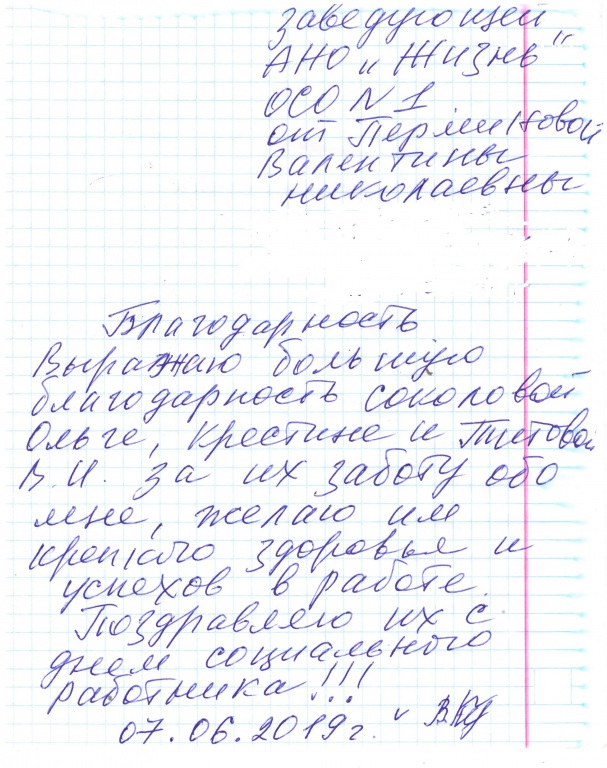 заведующей
АНО „Жизнь"
ОСО N 1
от Перминовой
Валентины
николаевны
Благодарность
Выражаю большую
благодарность соколовой
Ольге, Крестине и Титовой
В.И. за их заботу обо
мне, желаю им
крепкого здоровья и
успехов в работе.
Поздравляю их с
днем социального
работника!!!
07.06.2019г.